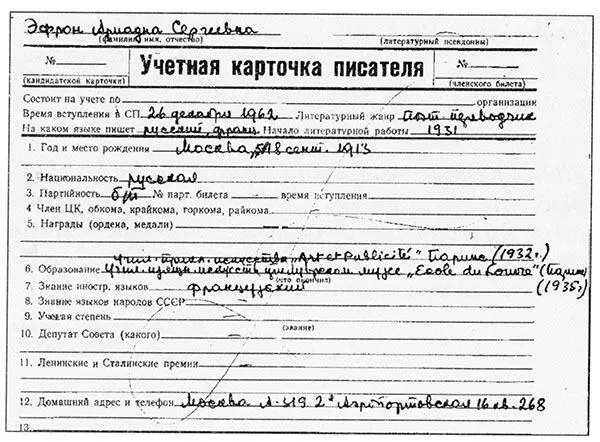 Эфрон Ариадна Сергеевна
(фамилия имя, отчество) (литературный псевдоним)
№ Учетная карточка писателя №
(кандидатской карточки) (членского билета)
Состоит на учете по организации
Время вступления в СП 26 декабря 1962 Литературный жанр поэт. переводчик
На каком языке пишет русский, франц. Начало литературной работы 1931
1. Год и место рождения Москва, 5/18 сент. 1913
2. Национальность русская
3. Партийность б/п № парт. билета — время вступления
4 Член ЦК, обкома, крайкома, горкома, райкома
5. Награды (ордена, медали) —
Учил. прикл. искусства „Art et Publicité" Париж (1932 г.)
6. Образование Учил. искусств при музее „Ecole du Louvre" (Париж)
(что окончил) (1935 г.)
7. Знание иностр. языков французский
8. Знание языков народов СССР —
9. Ученая степень —
(звание)
10. Депутат Совета (какого) —
11. Ленинские и Сталинские премии —
12. Домашний адрес и телефон Москва А-319 2я Аэропортовская 16 кв. 268
13.